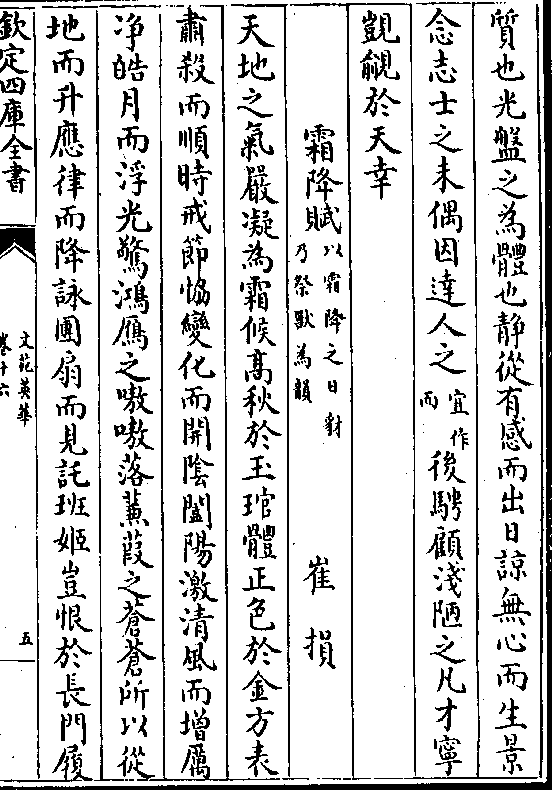 質也光盤之為體也静從有感而出日諒無心而生景
念志士之未偶因達人之宜作而後騁顧淺陋之凡才寧
覬覦於天幸
霜降賦以霜降之日豺乃祭獸為韻 崔損
天地之氣嚴凝為霜候髙秋於玉琯體正色於金方表
肅殺而順時戒節恊變化而開陰闔陽激清風而增厲
净皓月而浮光驚鴻鴈之嗷嗷落蒹葭之蒼蒼所以從
地而升應律而降詠團扇而見託班姬豈恨於長門履
欽定四庫全書
文苑英華
卷十六
五